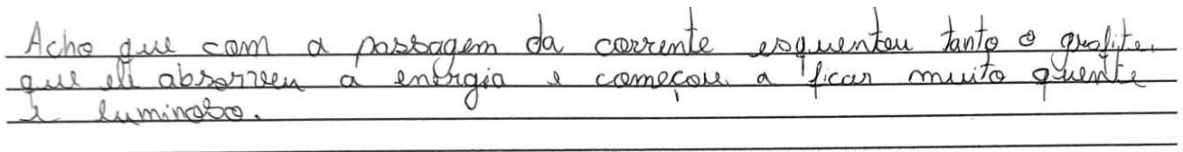 Acho que com a passagem da corrente esquentou tanto o grafite,
que ele absorveu a energia e começou a ficar muito quente
e luminoso.